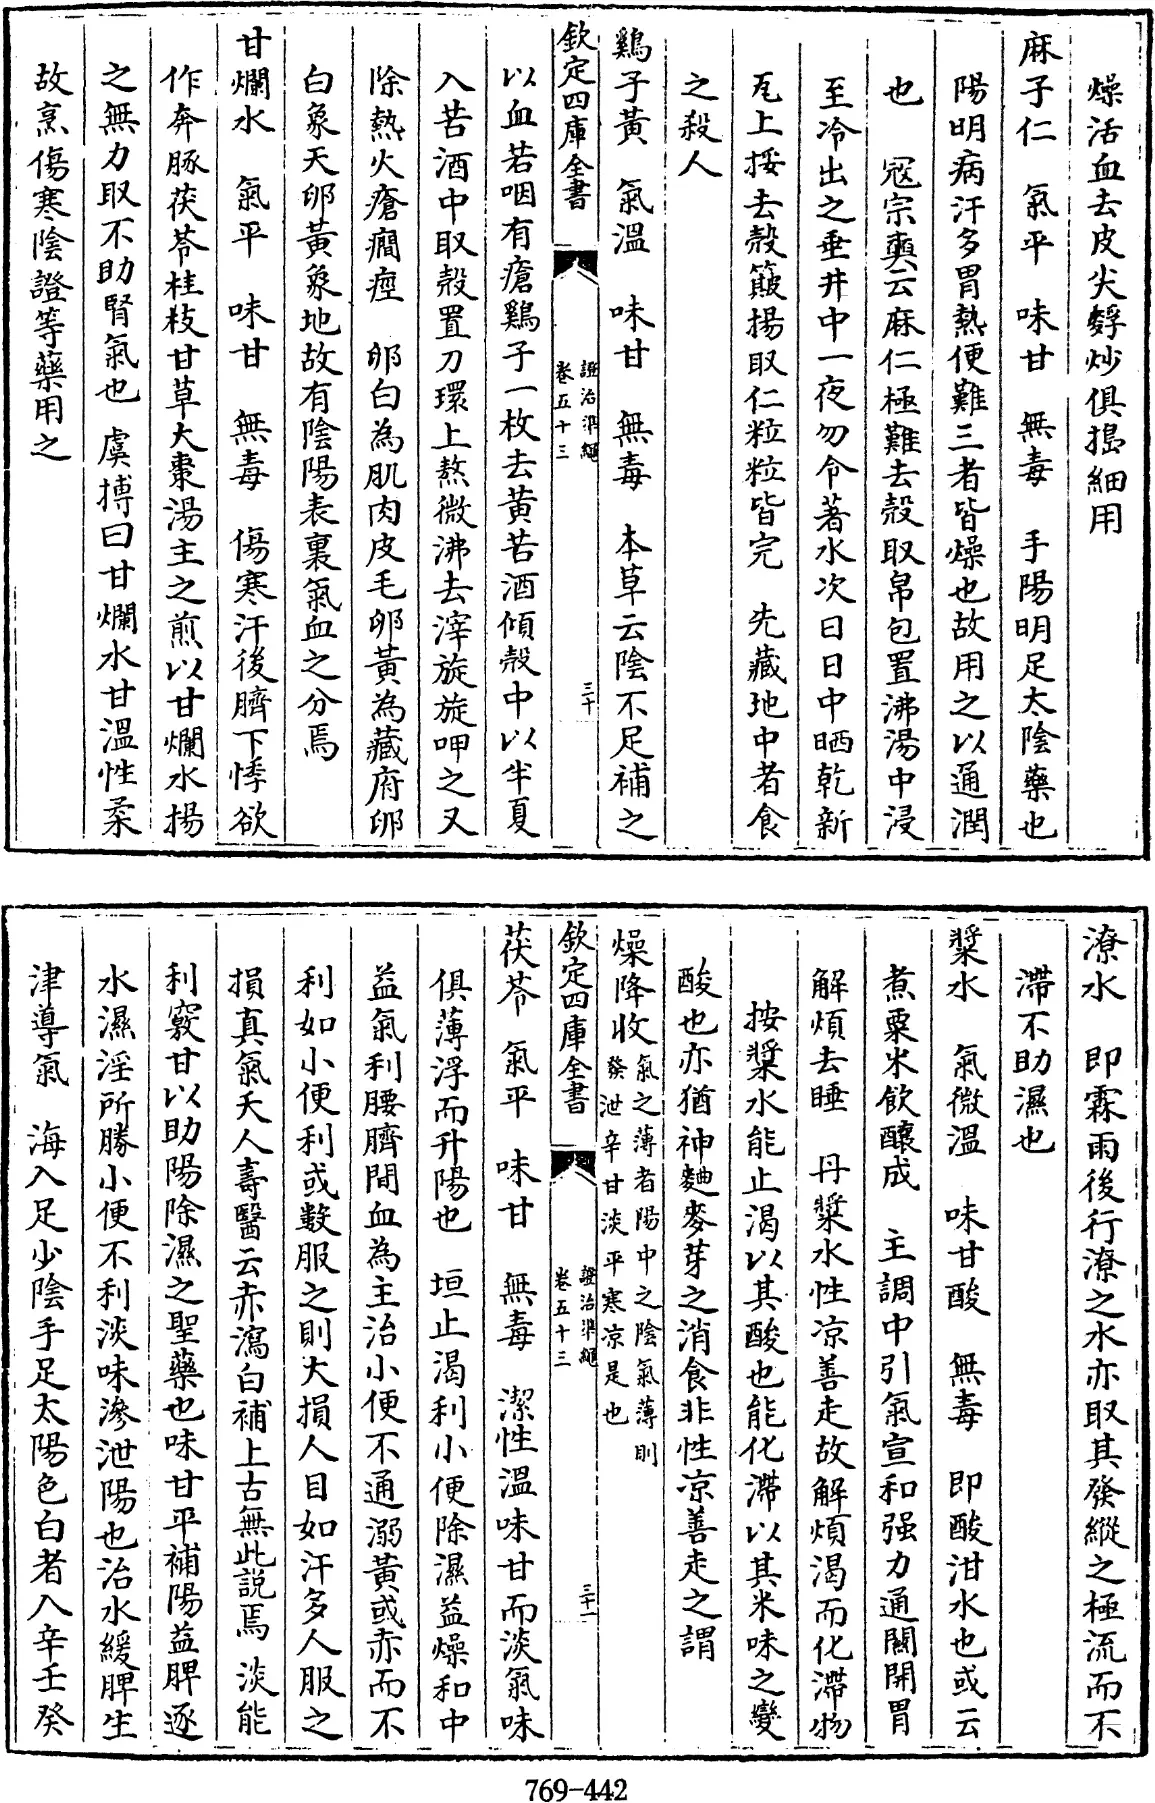 燥活血去皮尖麩炒俱搗細用
麻子仁　氣平　味甘　無毒　手陽明足太陰藥也
陽明病汗多胃熱便難三者皆燥也故用之以通潤
也　寇宗奭云麻仁極難去殼取帛包置沸湯中浸
至冷出之垂井中一夜勿令著水次日日中晒乾新
瓦上挼去殼簸揚取仁粒粒皆完　先藏地中者食
之殺人
雞子黃　氣溫　味甘　無毒　本草云陰不足補之
欽定四庫全書　證治準繩　卷五十三　三十
以血若咽有瘡雞子一枚去黃苦酒傾殼中以半夏
入苦酒中取殼置刀環上熬微沸去滓旋旋呷之又
除熱火瘡癇痙　卵白為肌肉皮毛卵黃為藏府卵
白象天卵黃象地故有陰陽表裏氣血之分焉
甘爛水　氣平　味甘　無毒　傷寒汗後臍下悸欲
作奔豚茯苓桂枝甘草大棗湯主之煎以甘爛水揚
之無力取不助腎氣也　虞摶曰甘爛水甘溫性柔
故烹傷寒陰證等藥用之
潦水　即霖雨後行潦之水亦取其發縱之極流而不
滯不助濕也
漿水　氣微溫　味甘酸　無毒　即酸泔水也或云
煮粟米飲釀成　主調中引氣宣和强力通關開胃
解煩去睡　丹漿水性凉善走故解煩渴而化滯物
按漿水能止渴以其酸也能化滯以其米味之變
酸也亦猶神麯麥芽之消食非性凉善走之謂
燥降收氣之薄者陽中之陰氣薄則發泄辛甘淡平寒凉是也
欽定四庫全書　證治準繩　卷五十三　三十一
茯苓　氣平　味甘　無毒　潔性溫味甘而淡氣味
俱薄浮而升陽也　垣止渴利小便除濕益燥和中
益氣利腰臍間血為主治小便不通溺黃或赤而不
利如小便利或數服之則大損人目如汗多人服之
損真氣夭人壽醫云赤瀉白補上古無此說焉　淡能
利竅甘以助陽除濕之聖藥也味甘平補陽益脾逐
水濕淫所勝小便不利淡味滲泄陽也治水緩脾生
津導氣　海入足少陰手足太陽色白者入辛壬癸
769-442